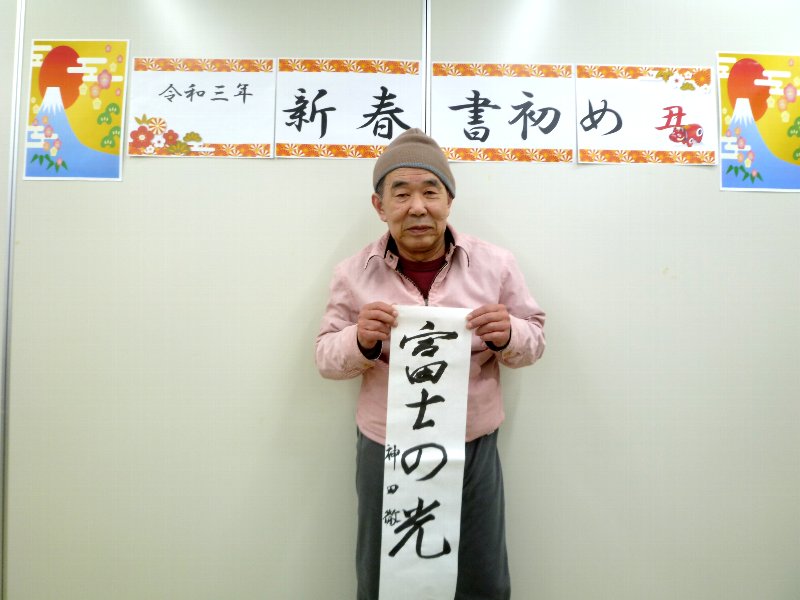 令和三年 新春書初め 丑
富士の光
神田敬